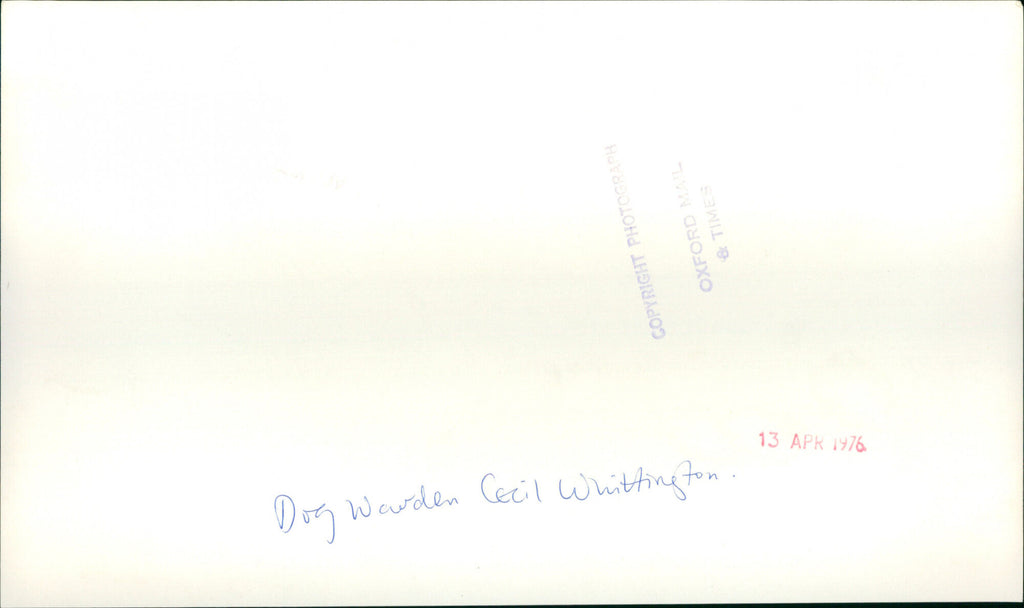 COPYRIGHT PHOTOGRAPH
OXFORD MAIL
& TIMES
13 APR 1976
Dog Warden Cecil Whittington.